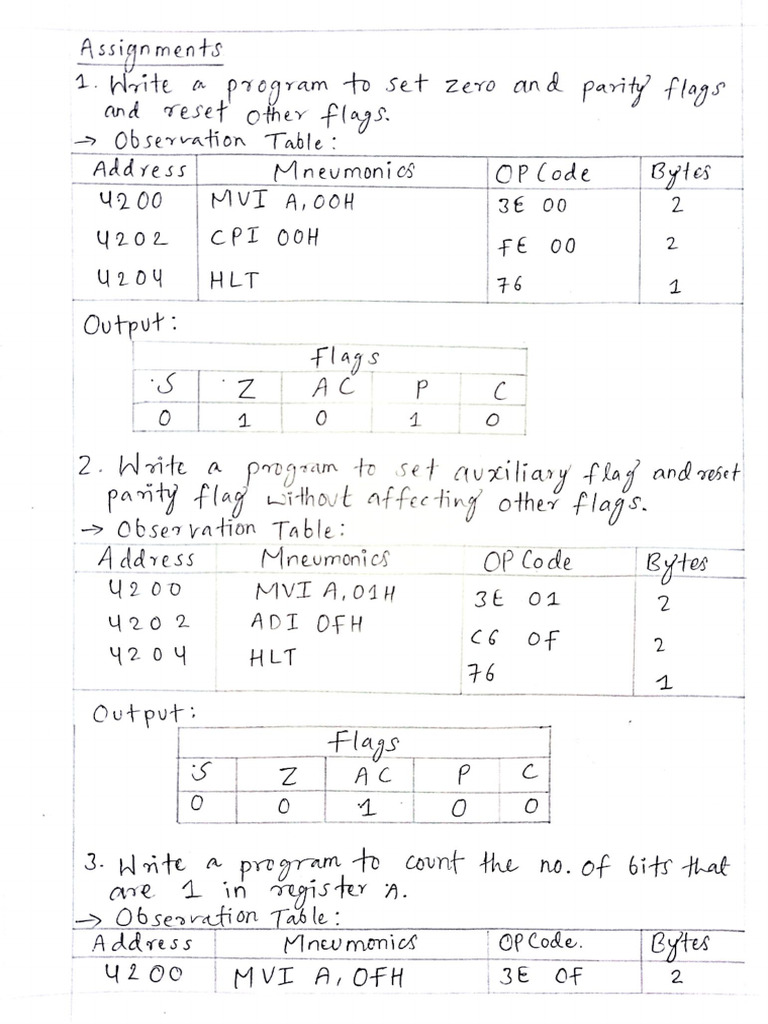 Assignments
1. Write a program to set zero and parity flags
and reset other flags.
→ Observation Table:
Address Mneumonics OP Code Bytes
4200 MVI A,00H 3E 00 2
4202 CPI 00H FE 00 2
4204 HLT 76 1
Output:
Flags
S Z AC P C
0 1 0 1 0
2. Write a program to set auxiliary flag and reset
parity flag without affecting other flags.
→ Observation Table:
Address Mneumonics OP Code Bytes
4200 MVI A,01H 3E 01 2
4202 ADI 0FH C6 0F 2
4204 HLT 76 1
Output:
Flags
S Z AC P C
0 0 1 0 0
3. Write a program to count the no. of bits that
are 1 in register A.
→ Observation Table:
Address Mneumonics OP Code. Bytes
4200 MVI A, 0FH 3E 0F 2